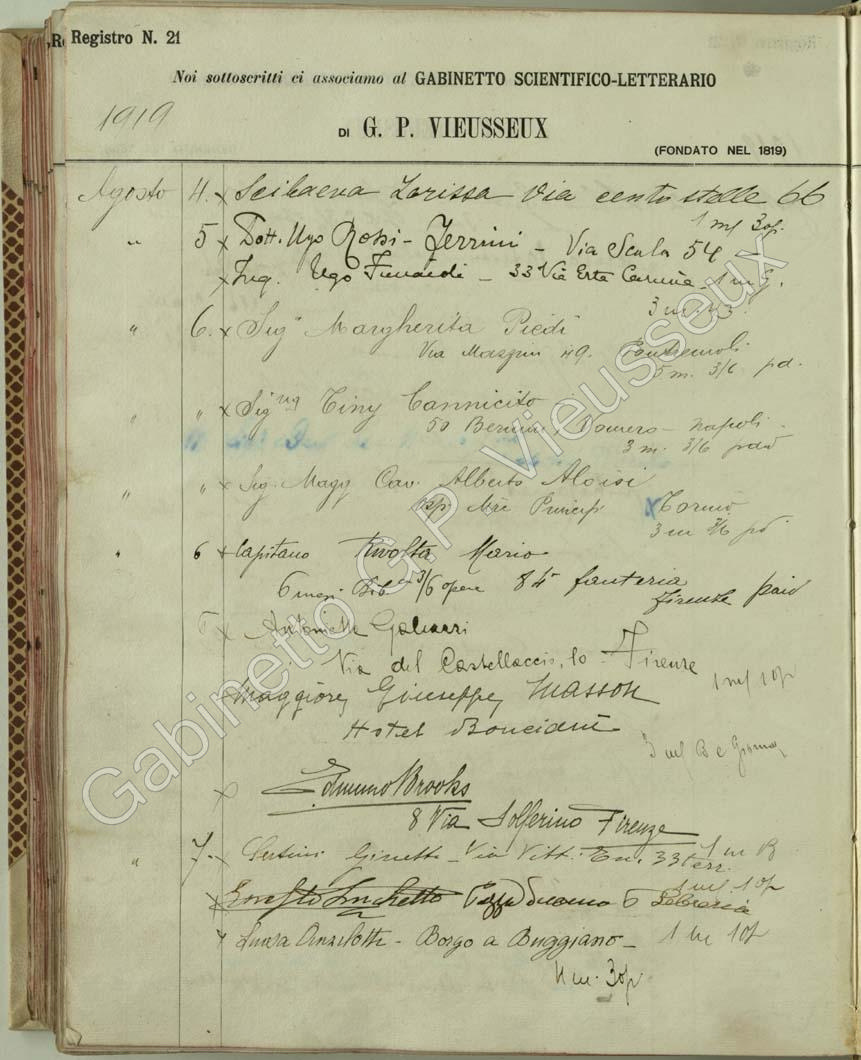 Registro N. 21
Noi sottoscritti ci associamo al GABINETTO SCIENTIFICO-LETTERARIO
1919
DI G. P. VIEUSSEUX
(FONDATO NEL 1819)
Agosto 4. x Scibaeva Larissa Via cento stelle 66
1 m/ 3 op.
" 5 x Dott. Ugo Rossi-Ferrini - Via Scala 54
x Ing. Ugo - 33 Via Erta Canina - 1 m
3 m.
" 6. x Sig.a Margherita Piedi
Via Mazzini 49. Pontremoli
5 m. 3/6 pd.
" " x Sig.na Tiny Cannicito
50 Bernini, Vomero - Napoli -
3 m. 3/6
" " x Sig. Magg Cav. Alberto Aloisi
x Torino
3 m 3/6 pd
" 6 x Capitano Rivolta Mario
6 mesi 3/6 opere 84 fanteria
Firenze paid
6 x Antonietta
Via del Castellaccio, 10 - Firenze
1 m/ 1 op
Maggiore Giuseppe Masson
Hotel
3 m/ B e
x Edmund Brooks
8 Via Solferino Firenze
" 7. x Ginetta - Via Vitt. Em. 33 terr.
1 m B
1 m/ 1 op
x Ernesto Luchetto Pzza Duomo 6 Libreria
x Luisa Anzilotti - Borgo a Buggiano -
1 m 1 op
3 op
Gabinetto G.P. Vieusseux